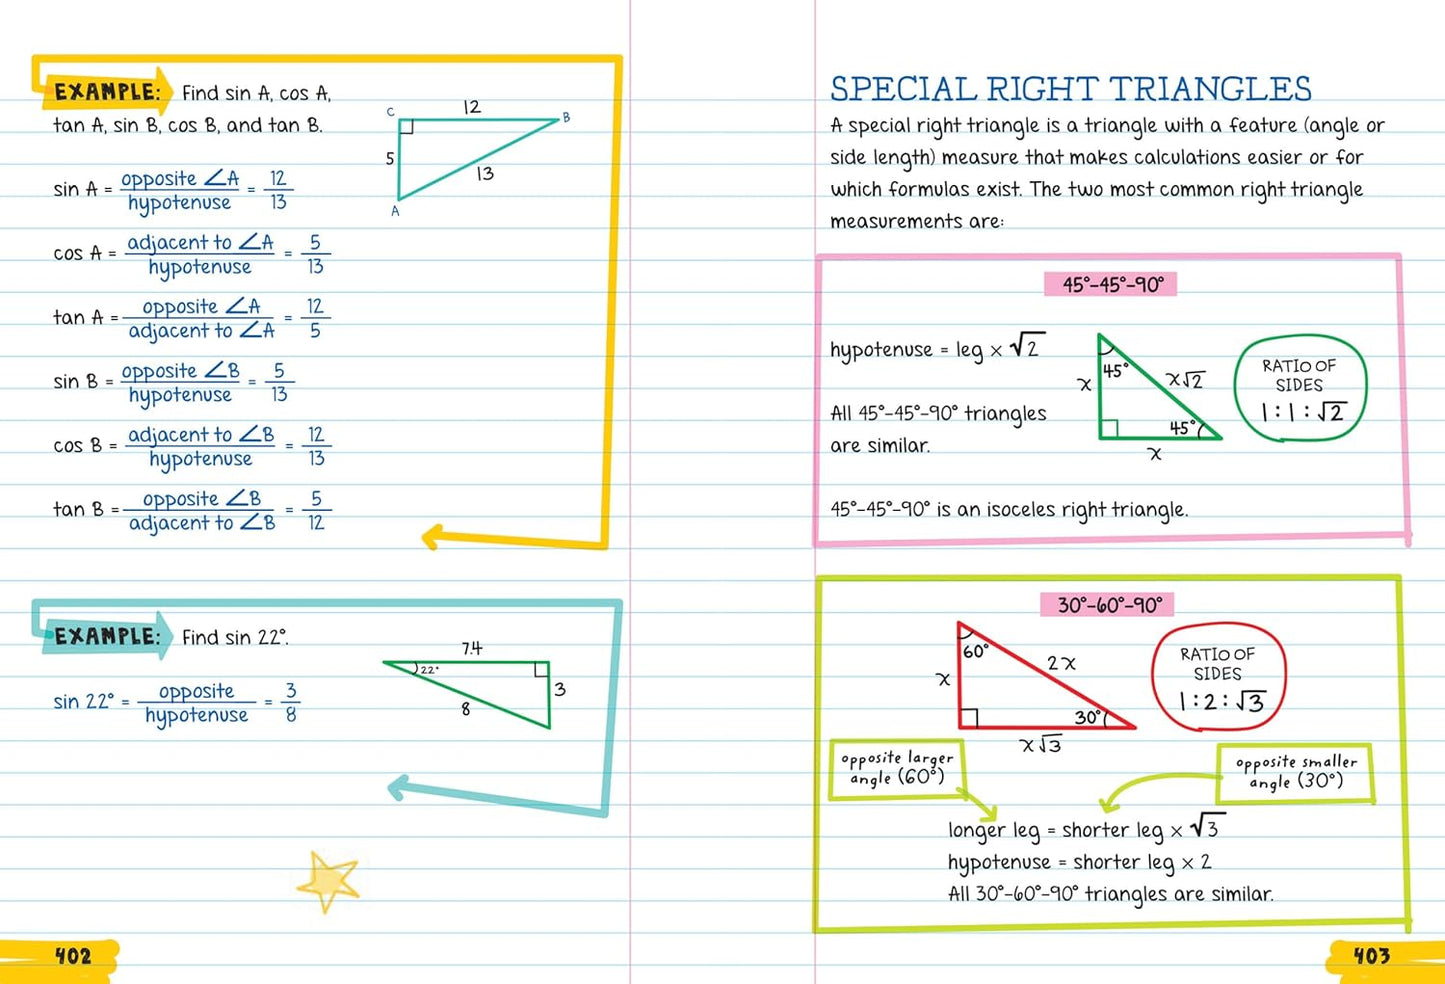 EXAMPLE: Find sin A, cos A,
tan A, sin B, cos B, and tan B.
C 12 B
5 13
A
sin A = opposite ∠A / hypotenuse = 12/13
cos A = adjacent to ∠A / hypotenuse = 5/13
tan A = opposite ∠A / adjacent to ∠A = 12/5
sin B = opposite ∠B / hypotenuse = 5/13
cos B = adjacent to ∠B / hypotenuse = 12/13
tan B = opposite ∠B / adjacent to ∠B = 5/12
EXAMPLE: Find sin 22°.
7.4
22° 3
8
sin 22° = opposite / hypotenuse = 3/8
402
SPECIAL RIGHT TRIANGLES
A special right triangle is a triangle with a feature (angle or
side length) measure that makes calculations easier or for
which formulas exist. The two most common right triangle
measurements are:
45°–45°–90°
hypotenuse = leg × √2
All 45°–45°–90° triangles
are similar.
45°–45°–90° is an isoceles right triangle.
45°
x x√2
45°
x
RATIO OF
SIDES
1 : 1 : √2
30°–60°–90°
60°
x 2x
30°
x√3
RATIO OF
SIDES
1 : 2 : √3
opposite larger
angle (60°)
opposite smaller
angle (30°)
longer leg = shorter leg × √3
hypotenuse = shorter leg × 2
All 30°–60°–90° triangles are similar.
403